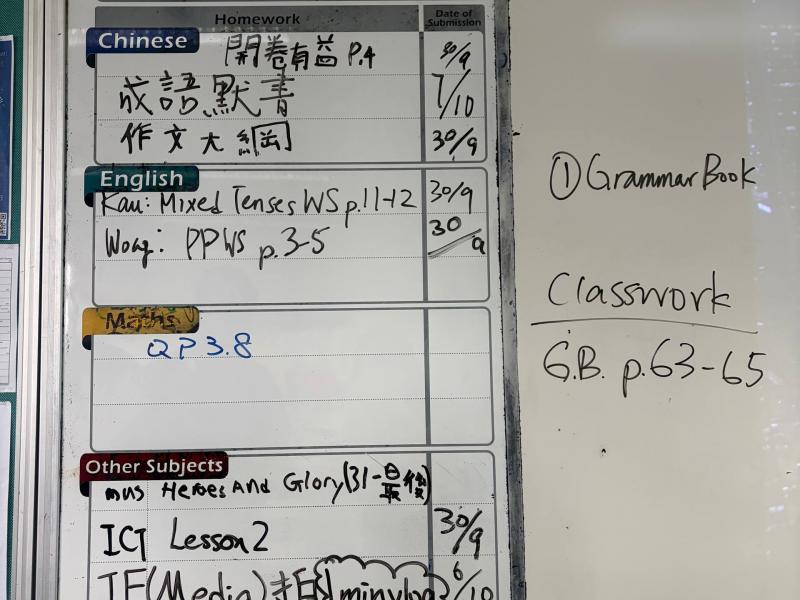 Homework
Date of Submission
Chinese
開卷有益 P.4
30/9
成語默書
7/10
作文大綱
30/9
English
Kau: Mixed Tenses WS p.11-12
30/9
Wong: PPWS p.3-5
30/9
Maths
QP 3.8
Other Subjects
mus Heroes And Glory (31-最後)
ICT Lesson 2
30/9
(Media)
6/10
① Grammar Book
Classwork
G.B. p.63-65